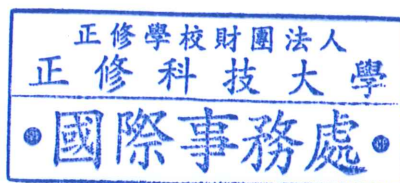 正修學校財團法人
正修科技大學
國際事務處